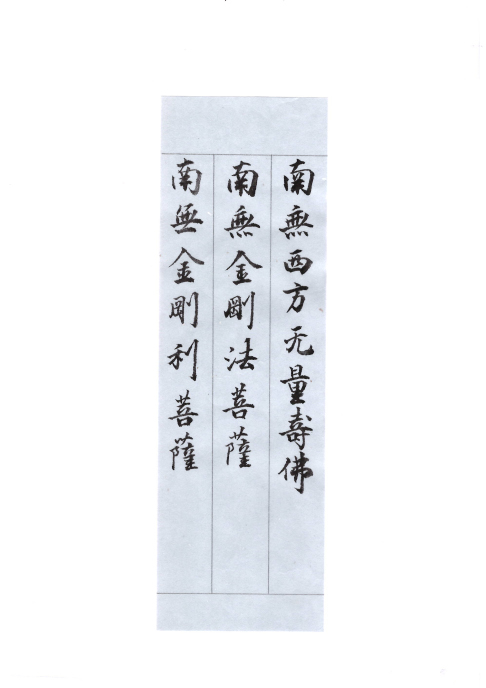 南無西方无量壽佛
南無金剛法菩薩
南無金剛利菩薩